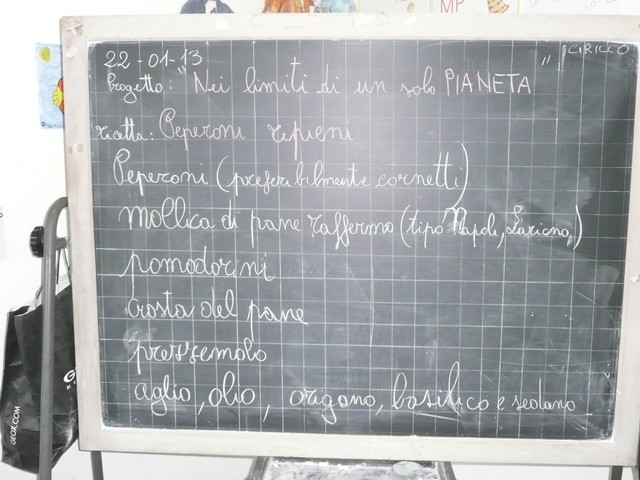 MP
22-01-13
CIRILLO
Progetto: "Nei limiti di un solo PIANETA"
ricetta: Peperoni ripieni
Peperoni (preferibilmente cornetti)
mollica di pane raffermo (tipo Napoli,
pomodorini
Crosta del pane
prezzemolo
aglio, olio, origano, basilico e sedano
GEOX.COM